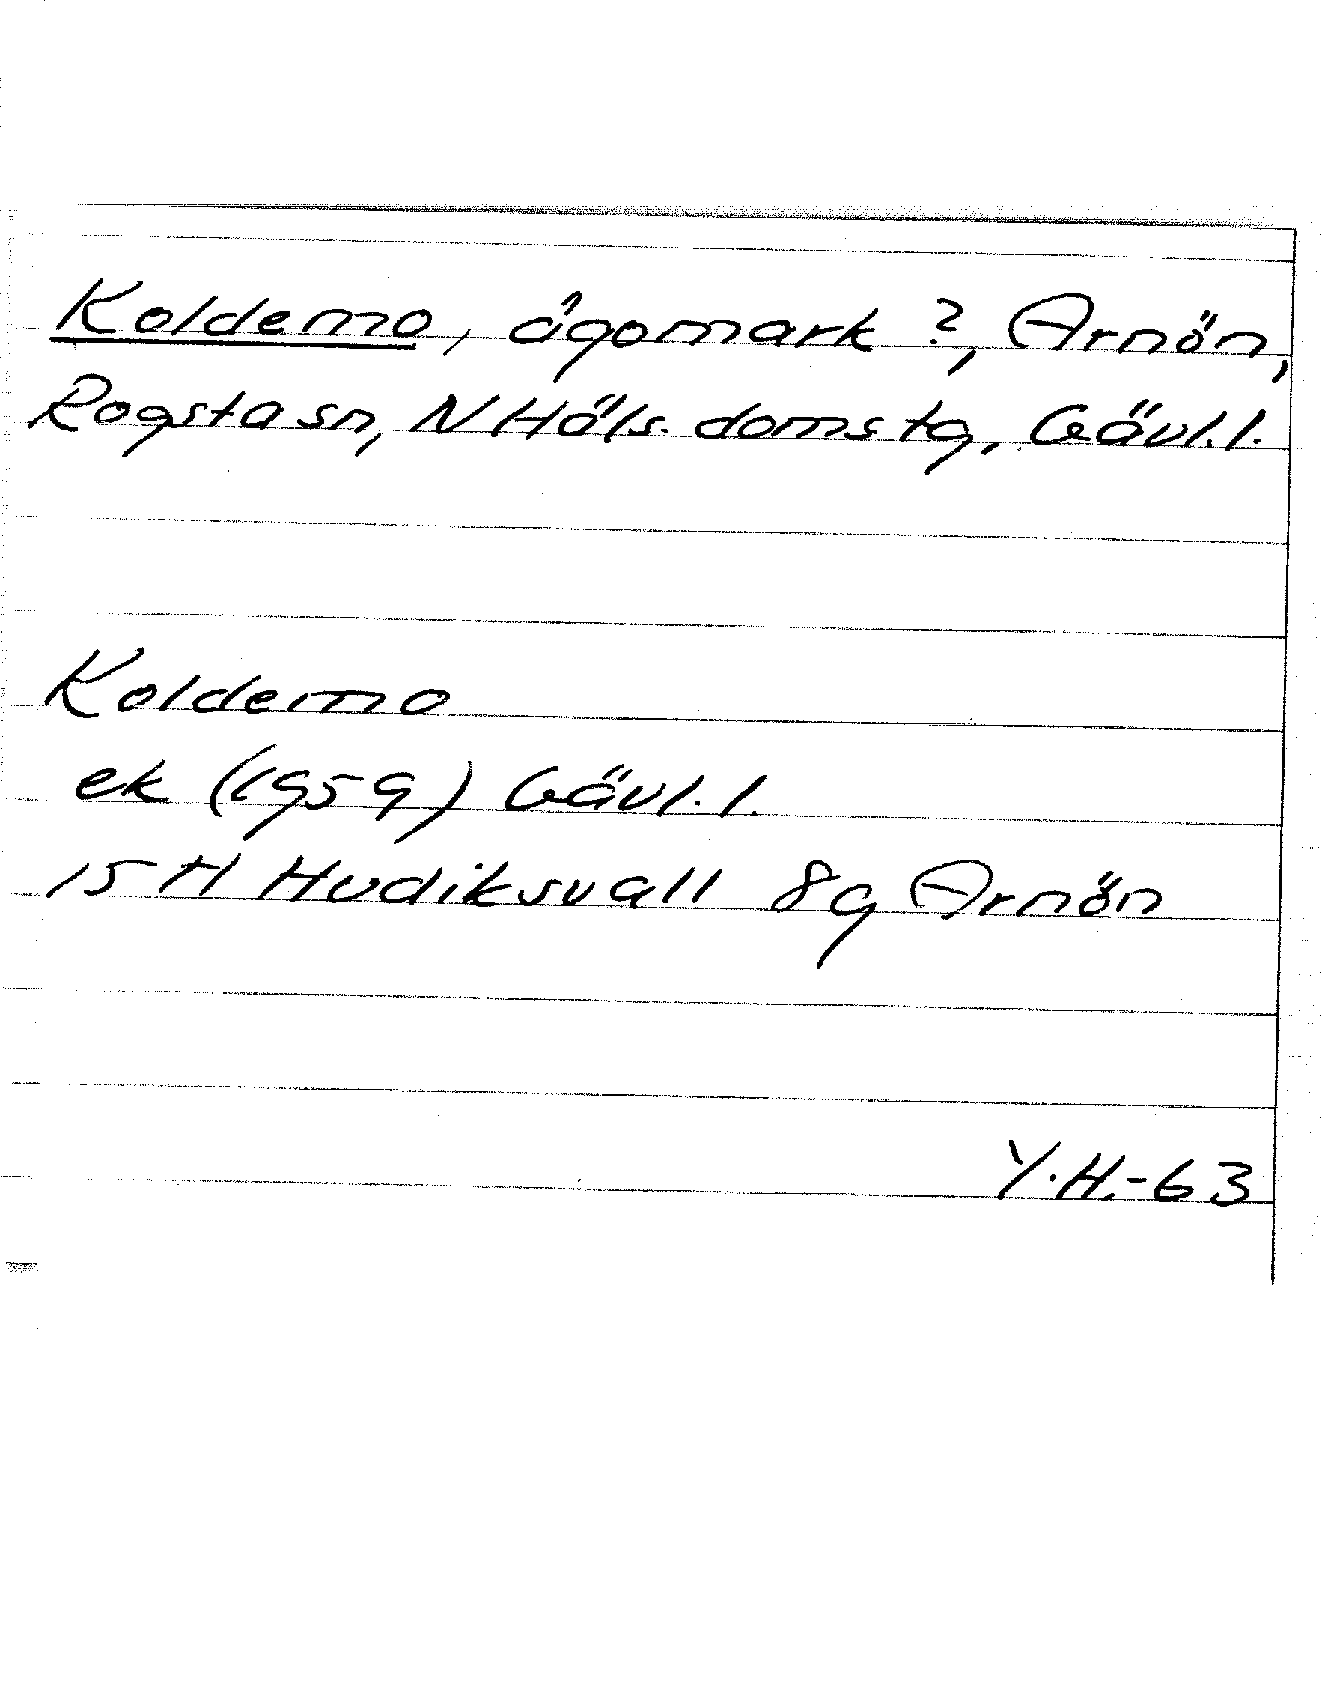 Koldemo, ägomark?, Arnön,
Rogsta sn, N Häls. domstg, Gävl. l.
Koldemo
ek (1959) Gävl. l.
15 H Hudiksvall 8g Arnön
Y.H.-63